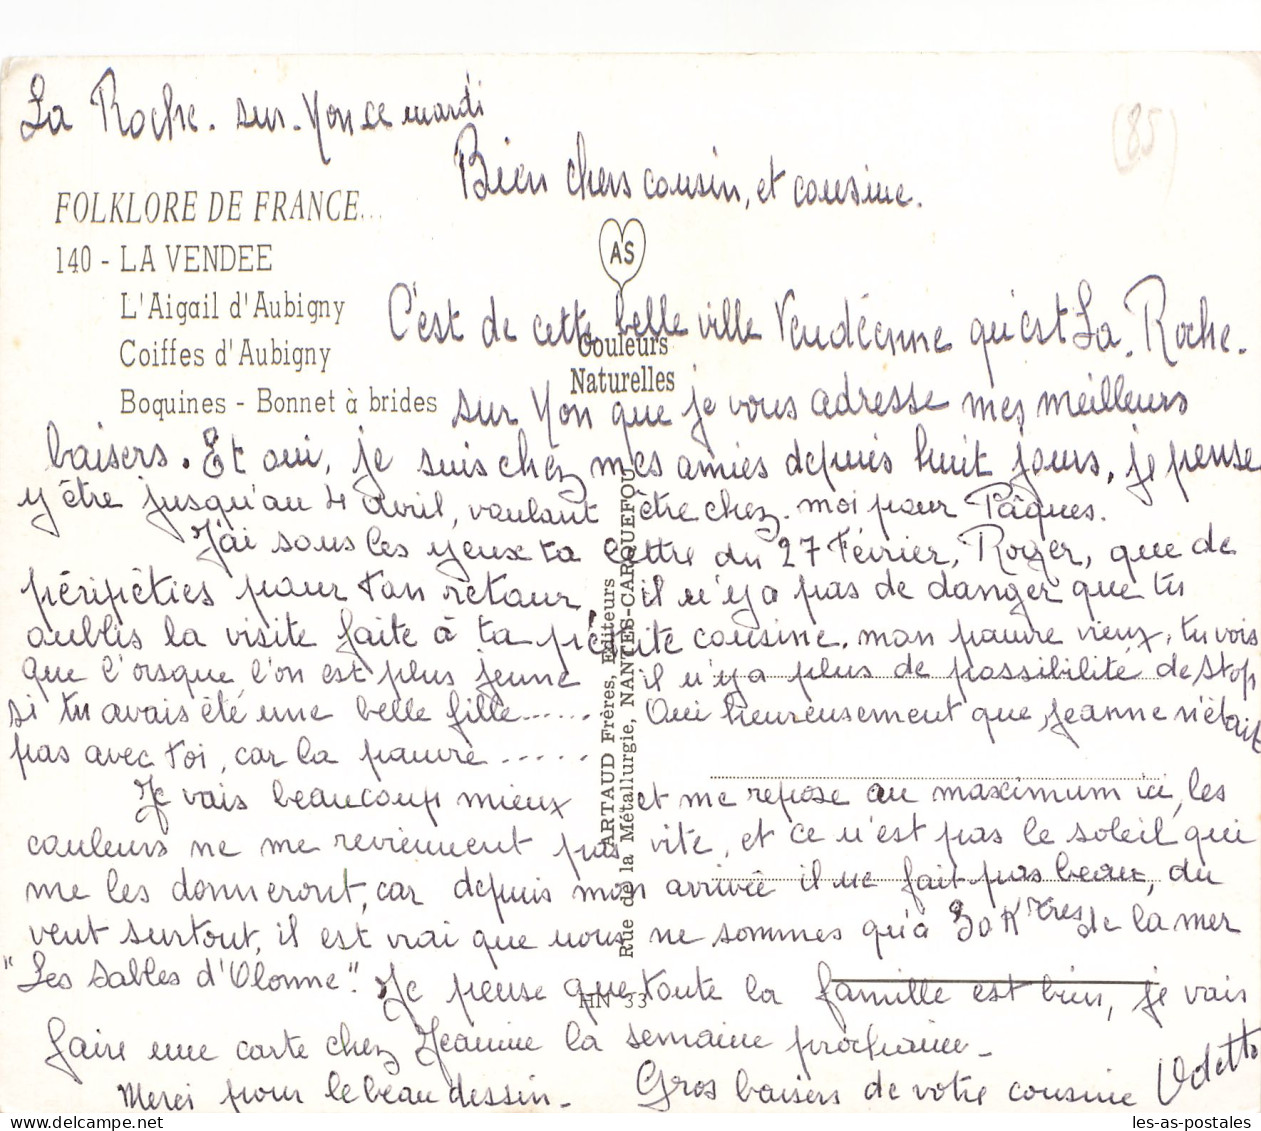 La Roche. sur. Yon ce mardi
(85)
Bien chers cousin, et cousine.
FOLKLORE DE FRANCE...
140 - LA VENDEE
L'Aigail d'Aubigny
Coiffes d'Aubigny
Boquines - Bonnet à brides
AS
Couleurs
Naturelles
C'est de cette belle ville Vendéenne qu'est La. Roche.
sur Yon que je vous adresse mes meilleurs
baisers. Et oui, je suis chez mes amies depuis huit jours, je pense
y être jusqu'au 4 Avril, voulant être chez moi pour Pâques.
J'ai sous les yeux ta lettre du 27 Février, Roger, que de
péripéties pour ton retour, il n'y a pas de danger que tu
oublis la visite faite à ta petite cousine, mon pauvre vieux, tu vois
que l'orsque l'on est plus jeune il n'y a plus de possibilité de stop
si tu avais été une belle fille...... Oui heureusement que Jeanne n'était
pas avec toi, car la pauvre......
Je vais beaucoup mieux et me repose au maximum ici, les
couleurs ne me reviennent pas vite, et ce n'est pas le soleil qui
me les donneront, car depuis mon arrivée il ne fait pas beau, du
vent surtout, il est vrai que nous ne sommes qu'à 30 Kтres de la mer
"Les Sables d'Olonne". Je pense que toute la famille est bien, je vais
faire une carte chez Jeanine la semaine prochaine_
Merci pour le beau dessin_ Gros baisers de votre cousine Odette
ARTAUD Frères, Editeurs
Rue de la Métallurgie, NANTES-CARQUEFOU
HN 33
les-as-postales